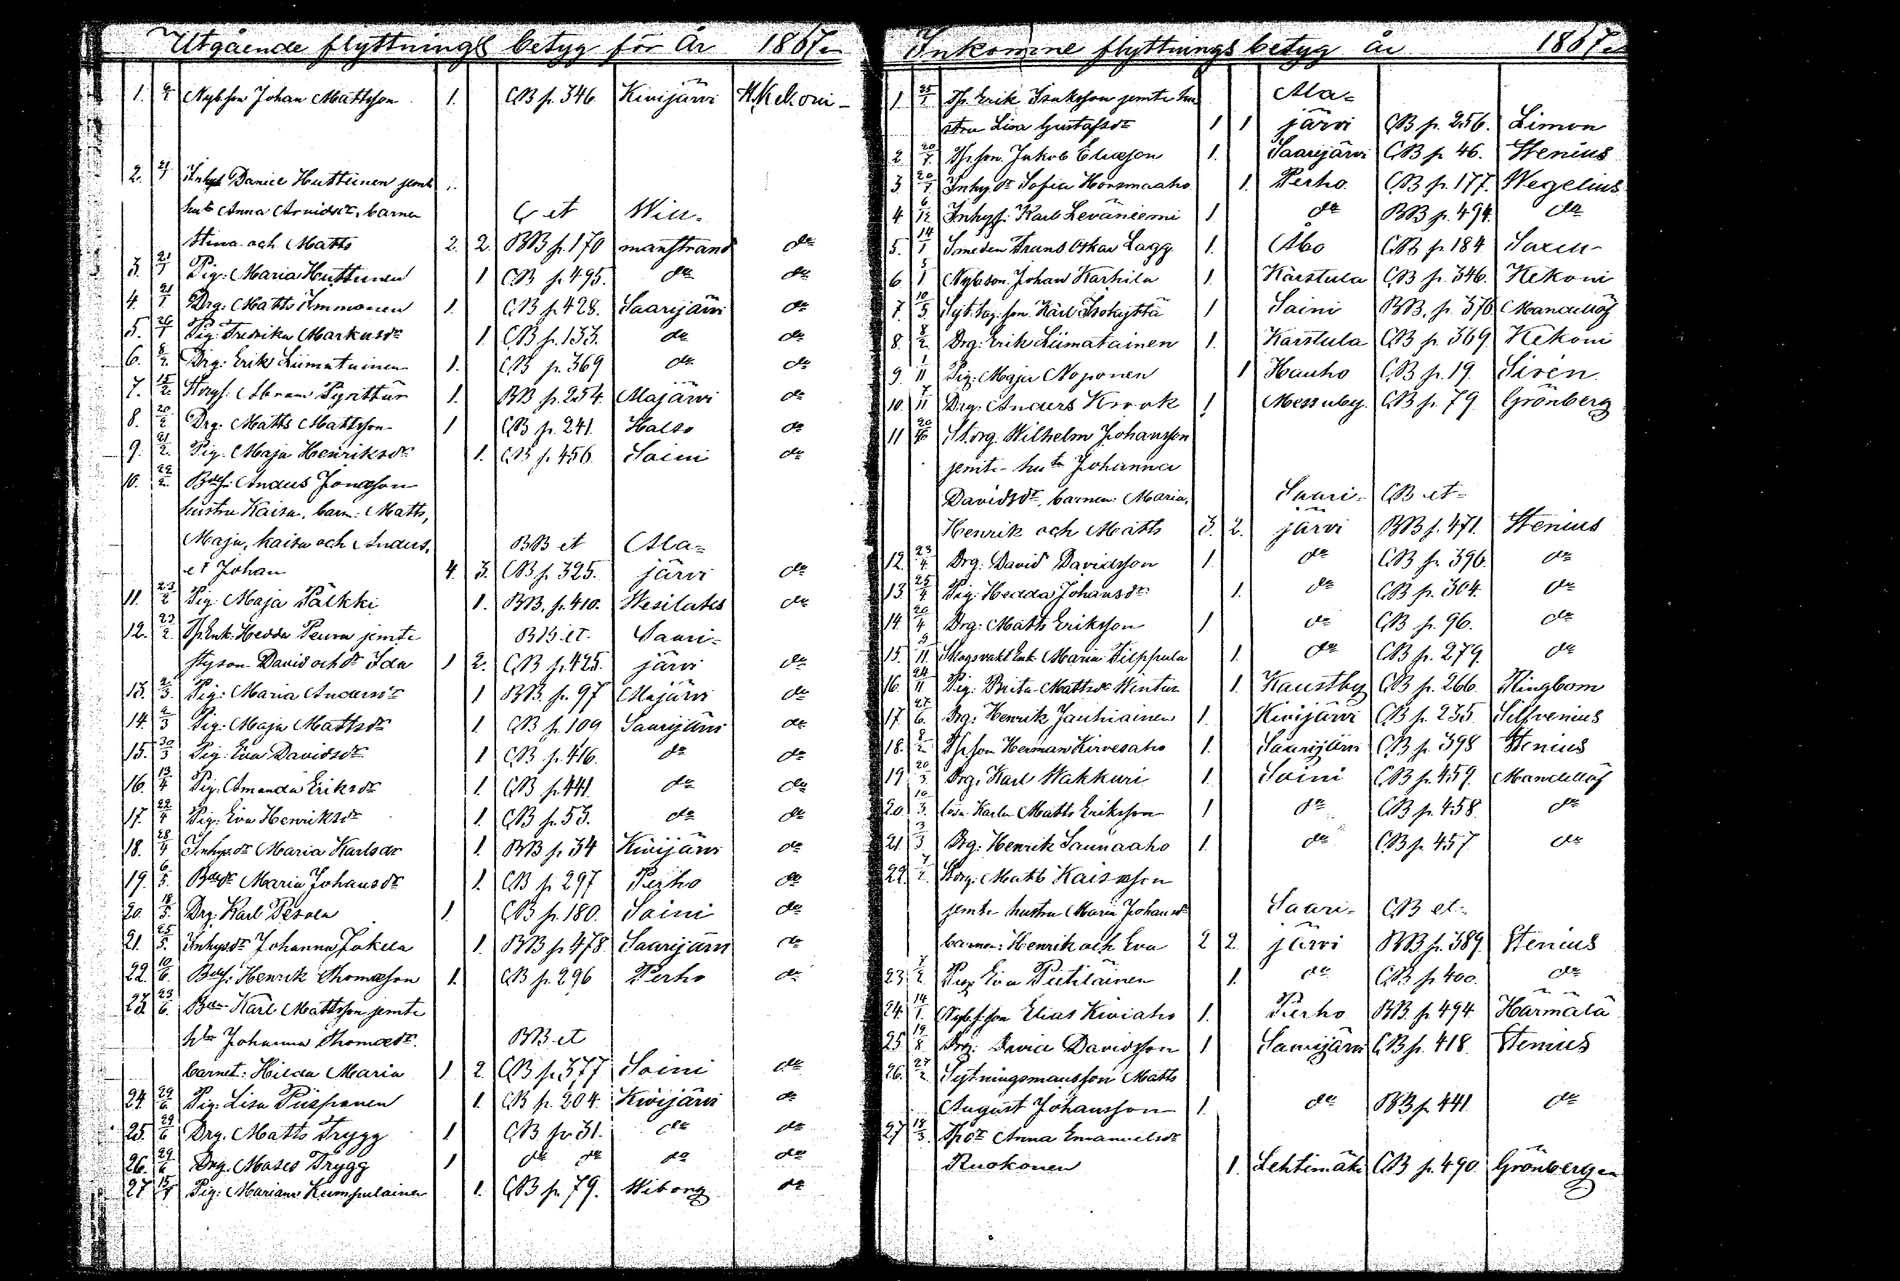 Utgående flyttnings betyg för År 1867
1. Nyb.son Johan Mattsson 1. CB p. 346 Kivijärvi H.Kekoni
2. 21/1 Inhys Daniel Huttunen jemte
hust. Anna Arvidsdr, barnen CB et Will-
Stina och Matts 2. 2. BB p. 170 manstrand do
3. 21/1 Pig: Maria Huttunen 1 CB p. 495. do do
4. 21/1 Drg: Matts Immonen 1. CB p. 428. Saarijärvi do
5. 26/1 Pig: Fredrika Markusdr 1 CB p. 133. do do
6. 8/2 Drg: Erik Liimatainen 1. CB p. 369 do do
7. 15/2 Abram Pyrittür 1. BB p. 254. Alajärvi do
8. 20/2 Drg: Matts Mattsson 1 CB p. 241. Halso do
9. 21/2 Pig. Maja Henriksdr 1. CB p. 456. Soini do
10. 22/2 Anders Jonasson
hustru Kaisa, barn: Matts,
Maja, Kaisa och Anders, BB et Ala-
et Johan 4. 3. CB p. 325. järvi do
11. 23/2 Pig: Maja Pälkki 1. BB. p. 410. Wesilaks do
12. 23/2 Enk: Hedda Peura jemte BB et Saari-
styson David och dr Ida 1 2. CB p. 425. järvi do
13. 2/3 Pig: Maria Andersdr 1 BB. p. 97 Alajärvi do
14. 2/3 Pig: Maja Mattsdr 1. CB p. 109 Saarijärvi do
15. 30/3 Pig: Eva Davidsdr 1 CB p. 416. do do
16. 13/4 Pig: Amanda Eriksdr 1. CB p. 441. do do
17. 22/4 Pig: Eva Henriksdr 1. CB p. 53. do do
18. 28/4 Inhys.dr Maria Karlsdr 1. BB p. 34 Kivijärvi do
19. 6/5 Maria Johansdr 1. CB p. 297 Perho do
20. 18/5 Drg: Karl Pesola 1. CB p. 180. Soini do
21. 25/5 Inhysdr Johanna Jokela 1. BB p. 478. Saarijärvi do
22. 10/6 Henrik Thomasson 1. CB p. 296 Perho do
23. 23/6 Karl Mattsson jemte
hu Johanna Thomasdr. BB et
barnet: Hilda Maria 1 2. CB p. 377 Soini do
24. 29/6 Pig: Lisa Piispanen 1. CB p. 204. Kivijärvi do
25. 29/6 Drg. Matts Trygg 1 CB p. 31. do do
26. 29/6 Drg. Moses Trygg 1 do do do do
27. Pig: Mariana Kumpulainen 1. CB p. 79. Wiborg do
Inkomne flyttnings betyg år 1867
1. 25/1 Tp. Erik Isaksson jemte hu Ala-
stru Lisa Gustafsdr 1 1 järvi CB p. 256. Limon
2 20/1 Tp. son Jakob Eliasson 1. Saarijärvi CB p 46. Stenius
3 20/1 Inhy.dr Sofia Honsmaaho 1. Perho. CB p. 177. Wegelius
4 6/12 Inhysf: Karl Levaniemi 1. do BB p. 494. do
5. 14/1 Smeden Frans Oskar Lagg 1. Åbo CB p. 184 Saxen
6 Nyb.son. Johan Karhila 1. Karstula CB p. 346. Kekoni
7. 10/3 Syt.tag. son. Karl Isohyttä 1 Soini BB. p. 376 Mandellöf
8. 8/2 Drg: Erik Liimatainen 1. Karstula CB p. 369. Kekoni
9 1/11 Pig: Maja Noponen 1 Hauho CB p. 19 Sirén.
10. 7/11 Drg: Anders Krook 1 Messuby. CB p. 79 Grönberg
11 St.drg. Wilhelm Johansson
jemte hu Johanna
Davidsdr, barnen: Maria, Saari- CB et
Henrik och Matts 3. 2. järvi BB p. 471. Stenius
12. 23/4 Drg: David Davidsson 1. do CB p. 396. do
13. 25/4 Pig: Hedda Johansdr 1. do CB p. 304. do
14. 20/4 Drg: Matts Eriksson 1. do CB p. 96. do
15. 9/11 Skogsvakt Enk. Maria Hilppula 1. do CB p. 279. do
16. 24/11 Pig: Brita Mattsdr Wintur 1. Kaustby CB p. 266. Ringbom
17. 27/6 Drg: Henrik Jauhiainen 1. Kivijärvi CB p. 235. Silfvenius
18. 8/2 Tp. son Herman Hirvesaho 1. Saarijärvi CB p. 398 Stenius
19. 20/3 Drg: Karl Wakkuri 1. Soini CB p. 459. Mandellöf
20. 10/3 lösa Karlen Matts Eriksson 1 do CB p. 458. do
21. 3/3 Drg: Henrik Saunaaho 1. do CB p. 457 do
22. Matts Kaisasson
jemte hustru Maria Johansdr Saari- CB et
barnen: Henrik och Eva 2 2. järvi BB p. 389. Stenius
23. Pig Eva Piitiläinen 1. do CB p. 400. do
24. 14/1 Nyb.s.son Elias Kiviaho 1. Perho BB. p. 494 Härmälä
25 19/8 Drg: David Davidsson 1 Saarijärvi CB p. 418. Stenius
26. 27/2 Sytningsmansson Matts
August Johansson 1. do BB p. 441. do
27 18/3 Tp dr Anna Emanuelsdr
Ruokonen 1. Lehtimäki CB p. 490. Grönberg